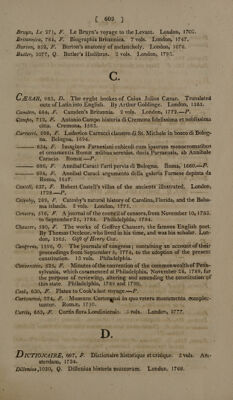 ( 602 )
Bruyn, Le 27), F. Le Bruyn's voyage to the Levant. London, 1702.
Britannica, 764, F. Biographia Britannica. 7 vols. London, 1747.
Burton, 852, F. Burton's anatomy of melancholy. London, 1676.
Butler, 1077, Q. Butler's Hudibras. 3 vols. London, 1793.
C.
CÆSAR, 983, D. The eyght bookes of Caius Julius Cæsar. Translated
oute of Latin into English. By Arthur Goldinge. London, 1565.
Camden, 484, F. Camden's Britannia. 3 vols. London, 1789.—P.
Campo, 729, F. Antonio Campo istoria di Cremona fidelissima et nobilissima
citta. Cremona, 1585.
Carracci, 592, F. Ludovico Carracci claustro di St. Michele in bosco di Bologna.
Bologna, 1694.
—— 834, F. Imagines Farnesiani cubiculi cum ipsarum monocromatibus
et ornamentis Romæ milius servidæ, ducis Parmensis, ab Annibale
Caracio. Romæ—P.
—— 838, F. Annibal Caraci l'arti pervia di Bologna. Roma, 1660.—P.
—— 894, F. Annibal Caraci argumento della galeria Farnese depinta da
Roma, 1657.
Castell, 637, F. Robert Castell's villas of the ancients illustrated. London,
1728.—P.
Catesby, 299, F. Catesby's natural history of Carolina, Florida, and the Bahama
islands. 2 vols. London, 1771.
Censors, 516, F. A journal of the council of censors, from November 10, 1783,
to September 25, 1784. Philadelphia, 1784.
Chaucer, 590, F. The works of Geffray Chaucer, the famous English poet.
By Thomas Occleve, who lived in his time, and was his scholar. London,
1561. Gift of Henry Cox.
Congress, 1186, O. The journals of congress; containing an account of their
proceedings from September 5, 1774, to the adoption of the present
constitution. 13 vols. Philadelphia.
Convention, 525, F. Minutes of the convention of the commonwealth of Pennsylvania,
which commenced at Philadelphia, November 24, 1789, for
the purpose of reviewing, altering and amending the constitution of
this state. Philadelphia, 1789 and 1790.
Cook, 630, F. Plates to Cook's last voyage.—P.
Cortonensi, 824, F. Museum Cortonensi in quo vetera monumenta complectuntur.
Romæ, 1750.
Curtis, 683, F. Curtis flora Londiniensis. 5 vols. London, 1777.
D.
DICTIONAIRE, 667, F. Dictionaire historique et critique. 5 vols. Amsterdam,
1734.
Dillenius, 1030, Q. Dillenius historia muscorum. London, 1768.